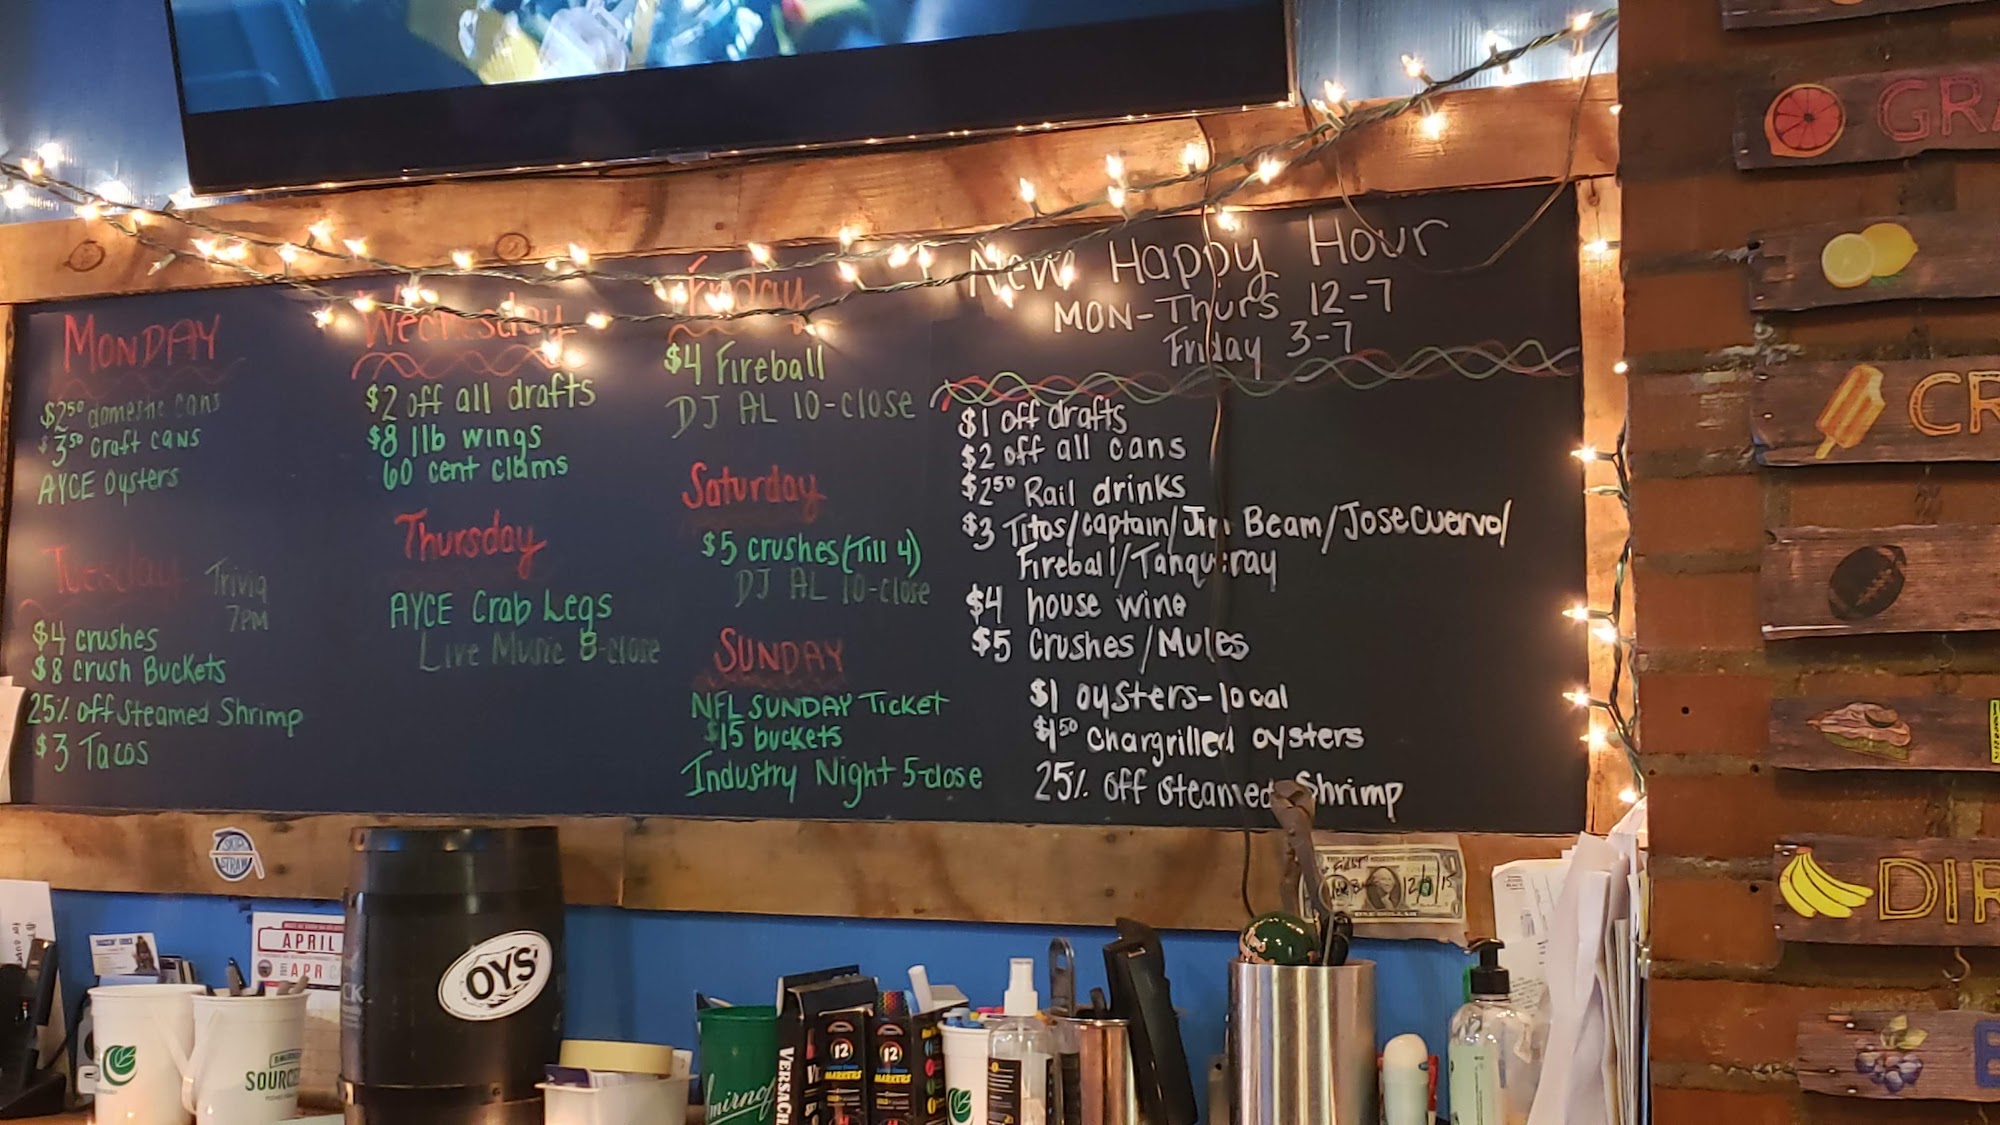 MONDAY
$2⁵⁰ domestic cans
$3⁵⁰ craft cans
AYCE Oysters
Tuesday
Trivia
7PM
$4 crushes
$8 crush Buckets
25% off Steamed Shrimp
$3 Tacos
Wednesday
$2 off all drafts
$8 1lb wings
60 cent clams
Thursday
AYCE Crab Legs
Live Music 8-close
Friday
$4 Fireball
DJ AL 10-close
Saturday
$5 crushes (Till 4)
DJ AL 10-close
SUNDAY
NFL SUNDAY TICKET
$15 buckets
Industry Night 5-close
New Happy Hour
MON-Thurs 12-7
Friday 3-7
$1 off drafts
$2 off all cans
$2⁵⁰ Rail drinks
$3 Titos/Captain/Jim Beam/Jose Cuervo/
Fireball/Tanqueray
$4 house wine
$5 Crushes/Mules
$1 oysters-local
$1⁵⁰ chargrilled oysters
25% off steamed Shrimp
GRA
CR
DIR
B
SKIP
STRAW
APRIL
APR
OYS
SOURC
Smirnoff
12
MARKERS
12
MARKERS
VERSACH